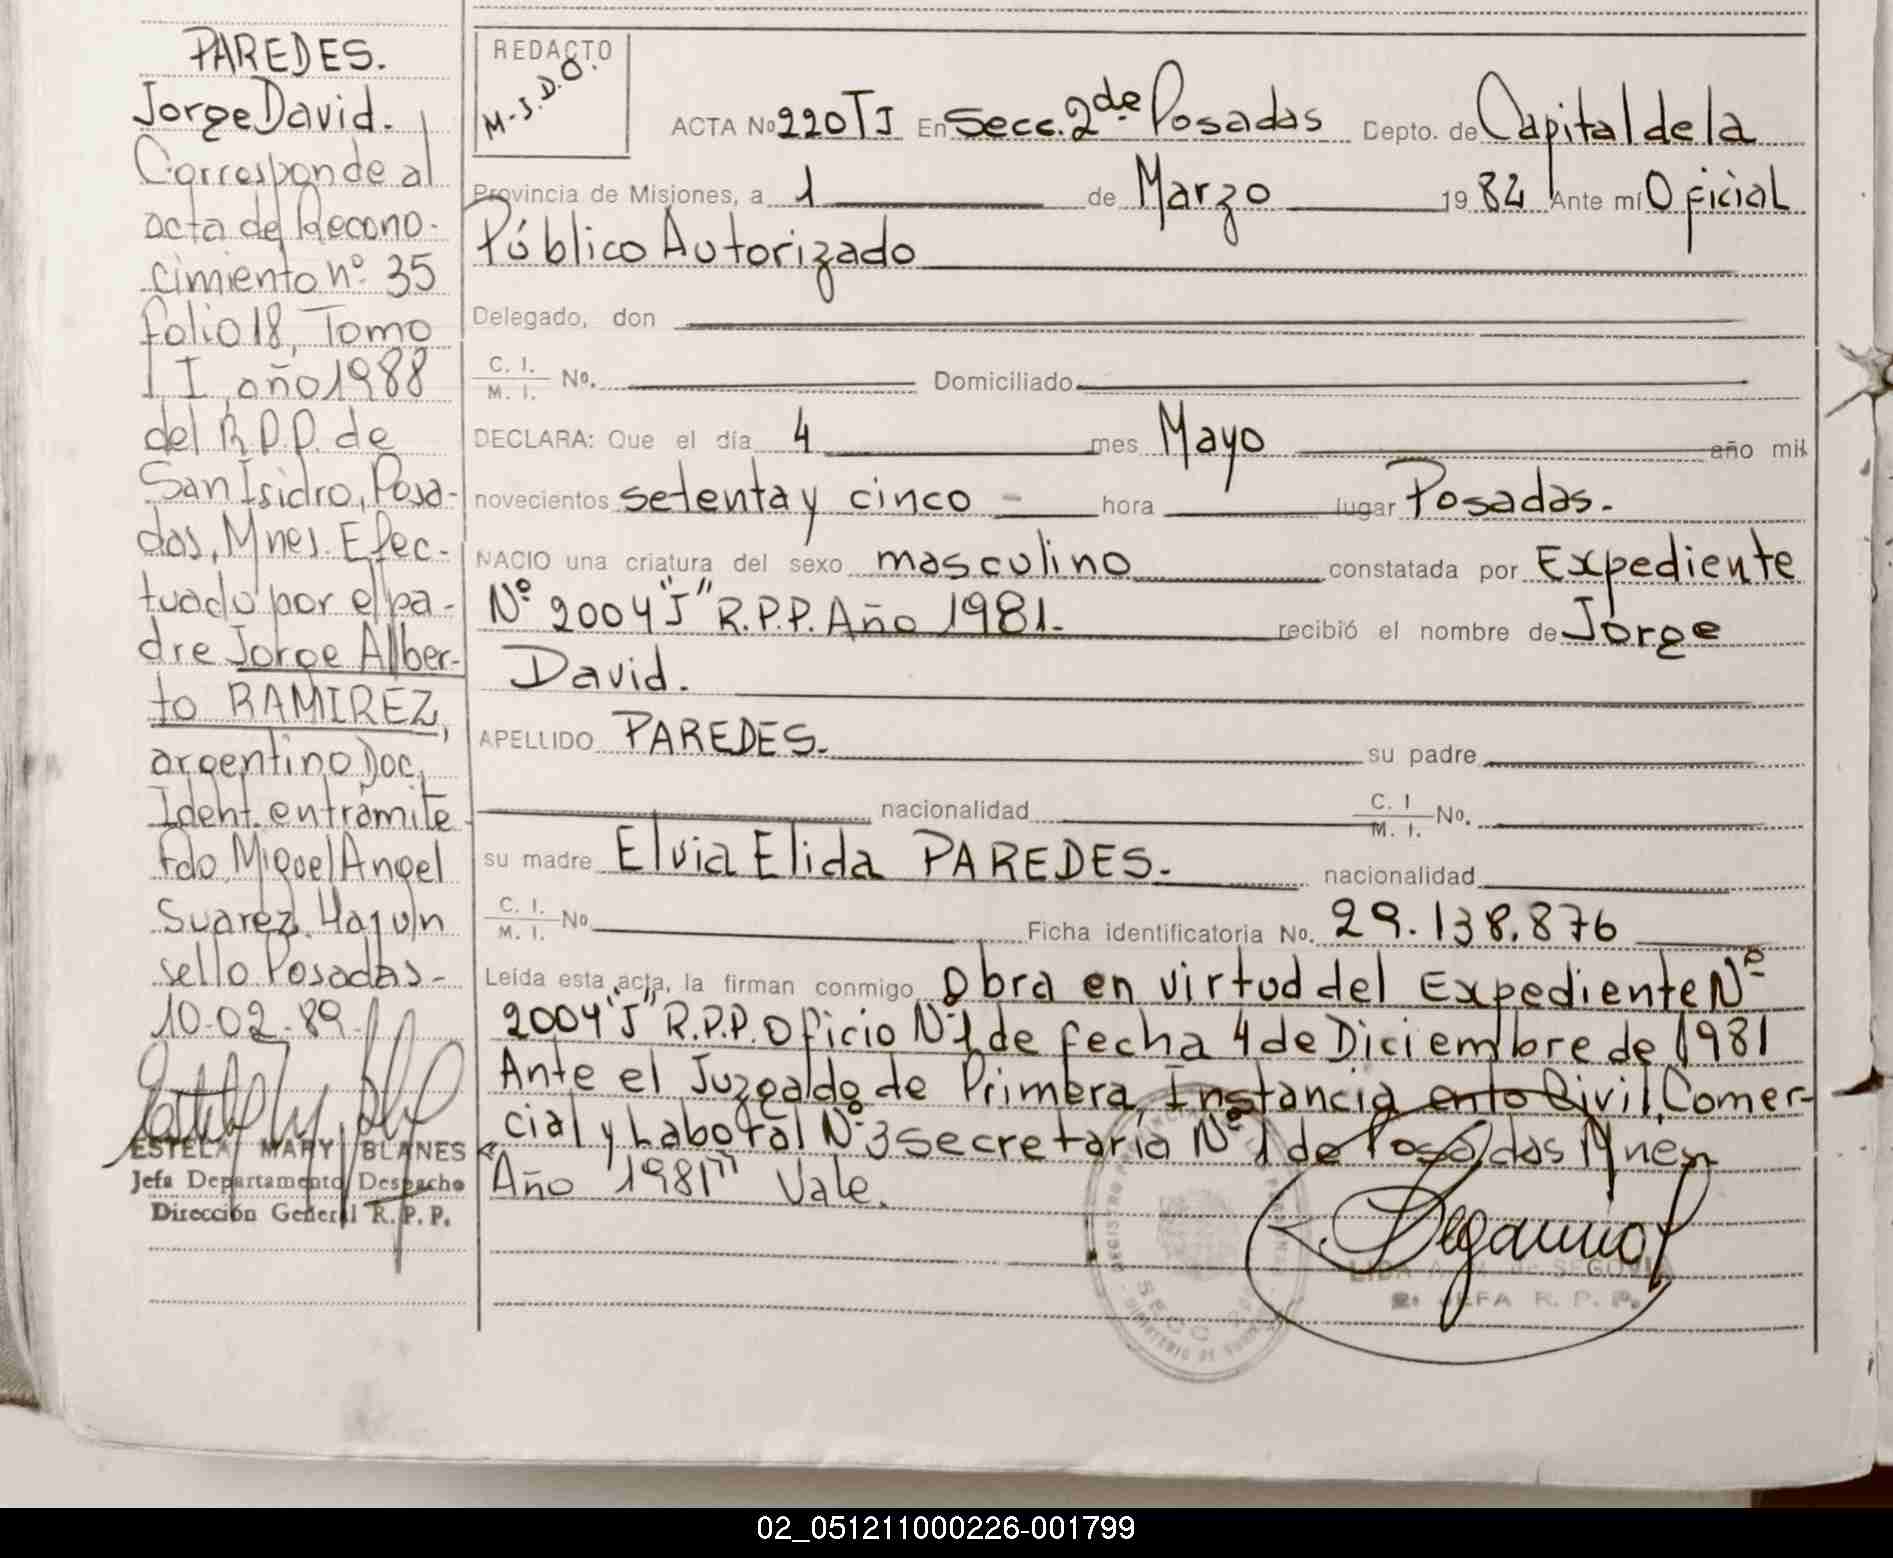 PAREDES.
Jorge David.
Corresponde al
acta de Recono-
cimiento nº 35
folio 18, Tomo
I I, año 1988
del R.P.P. de
San Isidro, Posa-
das, Mnes. Efec-
tuado por el pa-
dre Jorge Alber-
to RAMIREZ,
argentino Doc.
Ident. en trámite
fdo. Miguel Angel
Suarez. Hay un
sello Posadas-
10-02-89-
ESTELA MARY BLANES
Jefa Departamento Despacho
Dirección General R. P. P.
REDACTO
M-J.D.O.
ACTA No 220 TJ En Secc. 2da de Posadas Depto. de Capital de la
Provincia de Misiones, a 1 de Marzo 1984 Ante mí Oficial
Público Autorizado
Delegado, don
C. I.
M. I. No. Domiciliado
DECLARA: Que el día 4 mes Mayo año mil
novecientos setenta y cinco - hora lugar Posadas.
NACIO una criatura del sexo masculino constatada por Expediente
Nº 2004 "J" R.P.P. Año 1981. recibió el nombre de Jorge
David.
APELLIDO PAREDES. su padre
nacionalidad C. I
M. I. No.
su madre Elvia Elida PAREDES. nacionalidad
C. I.
M. I. No Ficha identificatoria No. 29.138.876
Leída esta acta, la firman conmigo Obra en virtud del Expediente Nº
2004 "J" R.P.P. Oficio Nº1 de fecha 4 de Diciembre de 1981
Ante el Juzgaldo de Primera Instancia en lo Civil, Comer-
cial y Laboral Nº 3 Secretaría Nº 1 de Posadas Mnes
Año 1981 "" Vale.
LIDA de SEGOVIA
JEFA R. P. P.
02_051211000226-001799